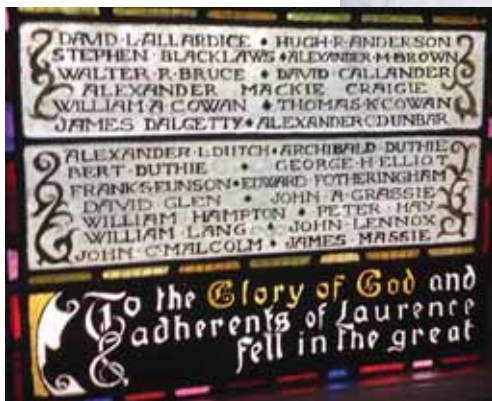 DAVID·L·ALLARDICE • HUGH·R·ANDERSON
STEPHEN BLACKLAWS • ALEXANDER·M·BROWN
WALTER·R·BRUCE • DAVID CALLANDER
ALEXANDER MACKIE CRAIGIE
WILLIAM·A·COWAN • THOMAS·K·COWAN
JAMES DALGETTY • ALEXANDER C DUNBAR
ALEXANDER·L·DUTCH • ARCHIBALD DUTHIE
BERT·DUTHIE • GEORGE·H·ELLIOT
FRANK S EUNSON • EDWARD FOTHERINGHAM
DAVID GLEN • JOHN·A·GRASSIE
WILLIAM HAMPTON • PETER·HAY
WILLIAM LANG • JOHN·LENNOX
JOHN Cᵗ MALCOLM • JAMES·MASSIE
To the Glory of God and
& adherents of Laurence
fell in the great